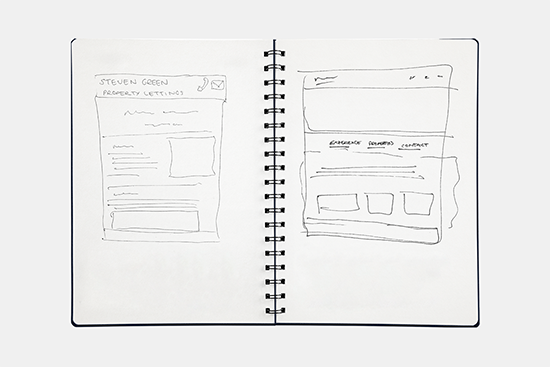 STEVEN GREEN
PROPERTY LETTINGS
EXPERIENCE PROPERTIES CONTACT